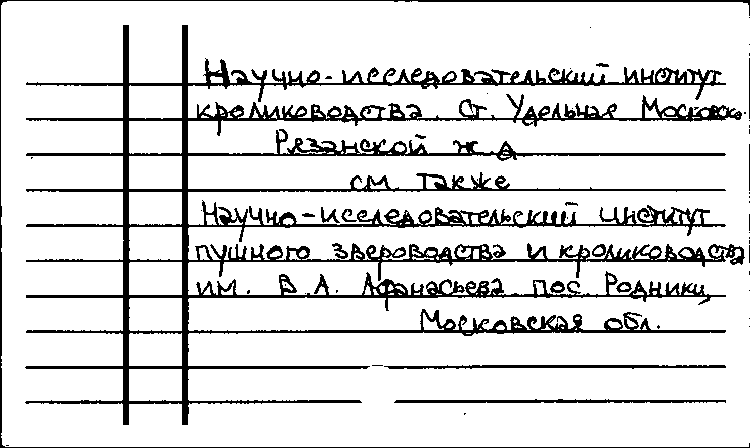 Научно-исследовательский институт
кролиководства. Ст. Удельная Московско-
Рязанской ж.д
см также
Научно-исследовательский институт
пушного звероводства и кролиководства
им. В.А. Афанасьева пос. Родники,
Московская обл.